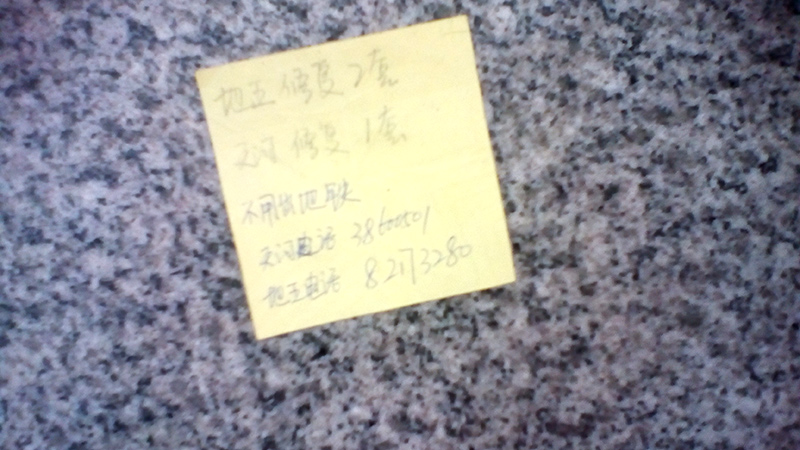 地王修复2套
天河修复1套
不用供地联
天河电话 38600501
地王电话 82173280